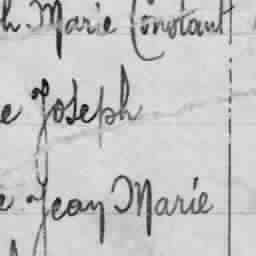 h. Marie Constant
e Joseph
e Jean Marie